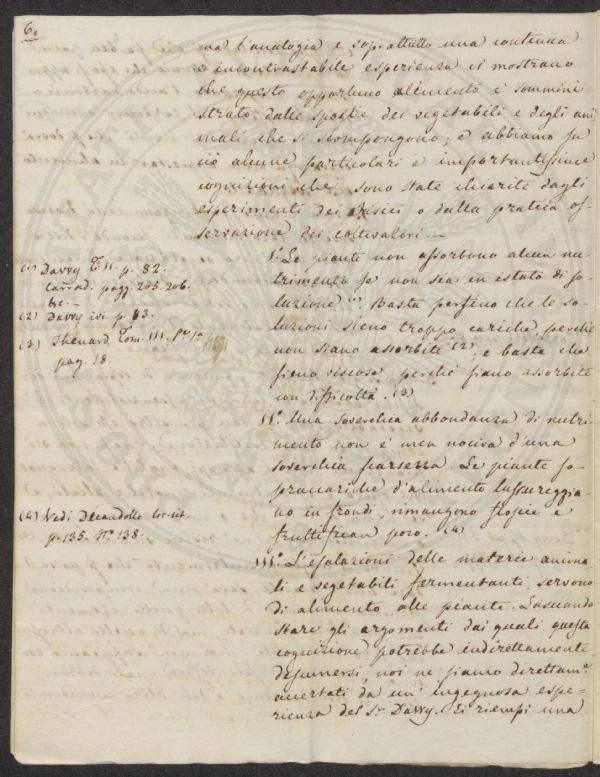 6.
ma l'analogia e soprattutto una continua
e incontrastabile esperienza ci mostrano
che questo opportuno alimento è sommini
strato dalle spoglie dei vegetabili e degli ani
mali che si scompongono; e abbiamo su
ciò alcune particolari e importantissime
cognizioni che sono state chiarite dagli
esperimenti dei Fisici o dalla pratica os
servazione dei coltivatori. —
I.° Le piante non assorbono alcun nu
trimento se non sia in istato di so
luzione (1). Basta persino che le so
luzioni sieno troppo cariche perchè
non siano assorbite (2), e basta che
sieno viscose, perchè siano assorbite
con difficoltà. (3)
II.° Una soverchia abbondanza di nutri-
mento non è men nociva d'una
soverchia scarsezza. Le piante so
praccariche d'alimento lussureggia
no in frondi, rimangono floscie e
fruttifican poco. (4)
III.° L'esalazioni delle materie anima
li e vegetabili fermentanti, servono
di alimento alle piante. Lasciando
stare gli argomenti dai quali questa
cognizione potrebbe indirettamente
desumersi, noi ne siamo direttam.e
accertati da un' ingegnosa espe-
rienza del S.r Davvy. Ei riempì una
(1) Davvy T. II. p. 82.
Carrad. pagg. 205. 206.
&c. —
(2) Davvy ivi p. 83.
(3) Thenard Tom. III. P.e 1.a
pag. 18.
(4) Vedi Decandolle loc. cit.
p. 135. N.° 138.